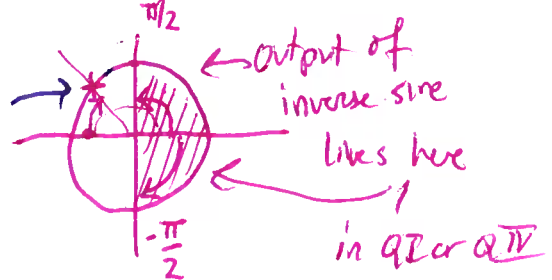 π/2
output of
inverse sine
lives here
in QI or QIV
-π/2